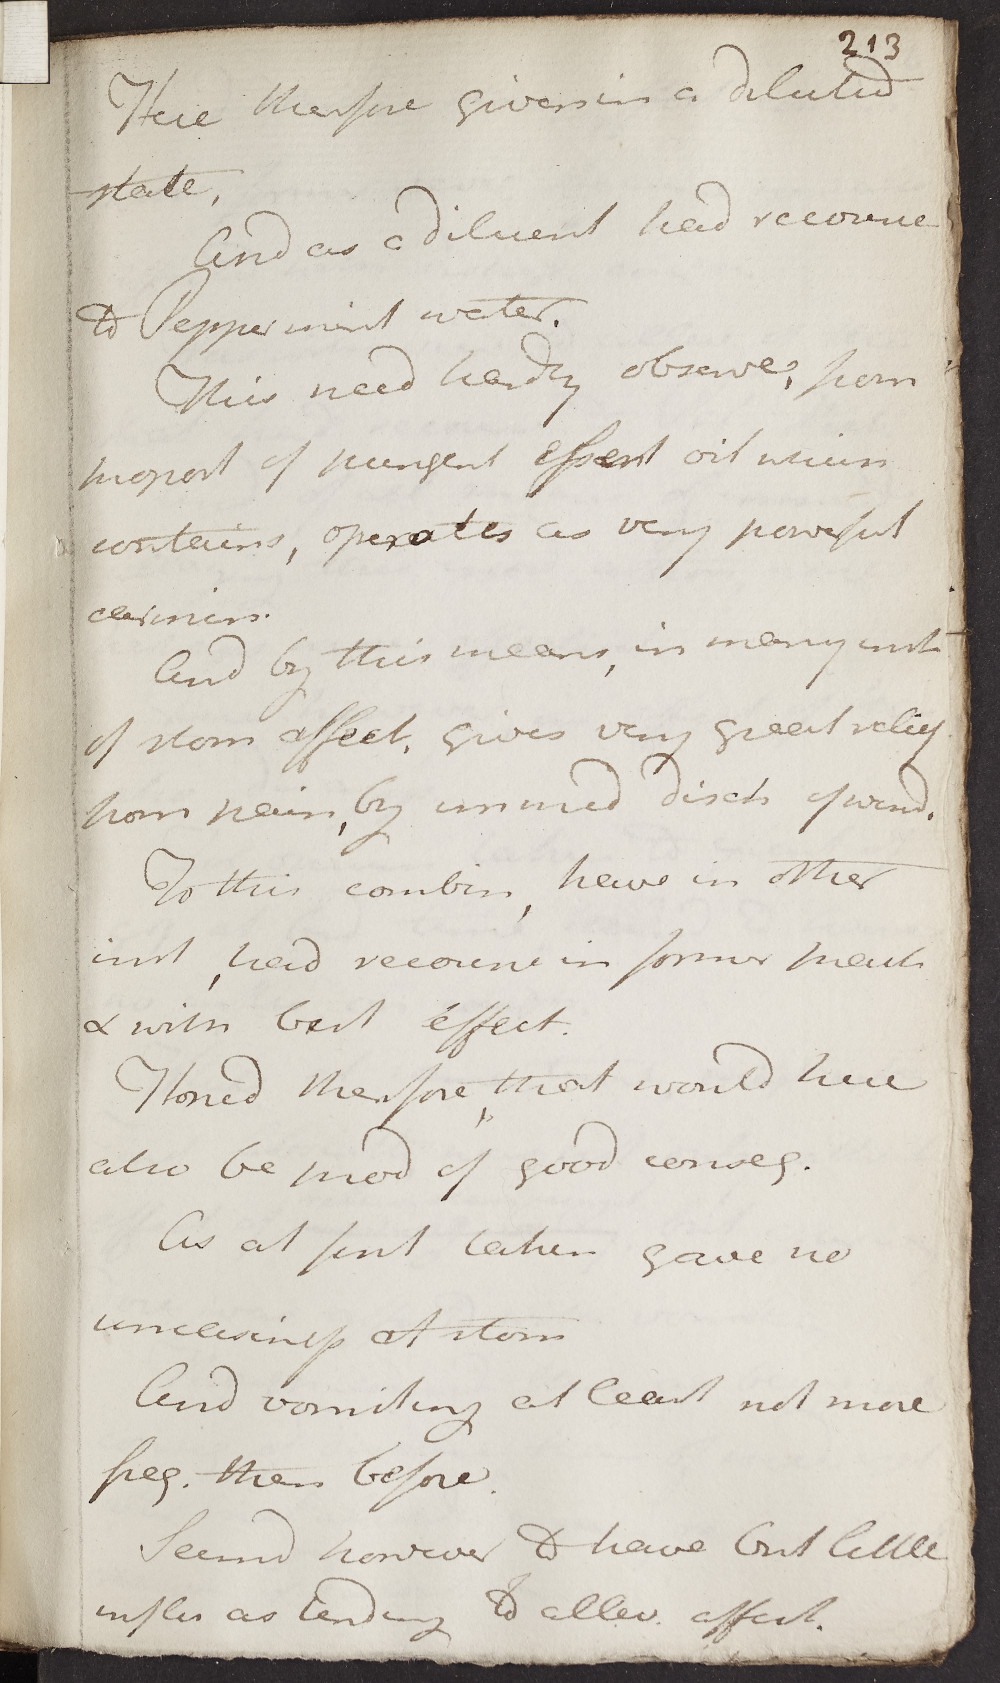 213
Here therefore given in a diluted
state,
And as a diluent had recourse
to Peppermint water.
This need hardly observe, from
proport of pungent Essent oil which
contains, operates as very powerful
carmin.
And by this means, in many inst
of stom affect. gives very great relief
from pain, by immed disch of wind.
To this combin, have in other
inst, had recourse in former pract
& with best effect.
Hoped therefore, that would here
also be prod of good conseq.
As at first taken gave no
uneasiness at stom
And vomiting at least not more
freq. than before.
Seemd however to have but little
influ as tending to allev. affect.